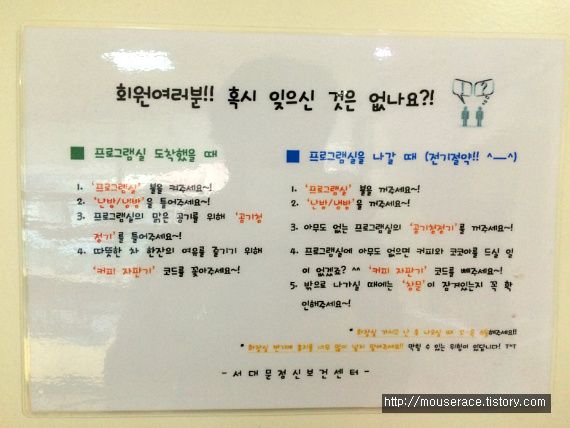 회원여러분!! 혹시 잊으신 것은 없나요?!
■ 프로그램실 도착했을 때
1. '프로그램실' 불을 켜주세요~!
2. '난방/냉방'을 틀어주세요~!
3. 프로그램실의 맑은 공기를 위해 '공기청
정기'를 틀어주세요~!
4. 따뜻한 차 한잔의 여유를 즐기기 위해
'커피 자판기' 코드를 꽂아주세요~!
■ 프로그램실을 나갈 때 (전기절약!! ^―^)
1. '프로그램실' 불을 꺼주세요~!
2. '난방/냉방'을 꺼주세요~!
3. 아무도 없는 프로그램실의 '공기청정기'를 꺼주세요~!
4. 프로그램실에 아무도 없으면 커피와 코코아를 드실 일
이 없겠죠? ^^ '커피 자판기' 코드를 빼주세요~!
5. 밖으로 나가실 때에는 '창문'이 잠겨있는지 꼭 확
인해주세요~!
* 화장실 가시고 난 후 나오실 때 꼭 해주세요!!
* 화장실 변기에 휴지를 너무 많이 넣지 말아주세요!! 막힐 수 있는 위험이 있답니다! TㅅT
- 서대문정신보건센터 -
http://mouserace.tistory.com